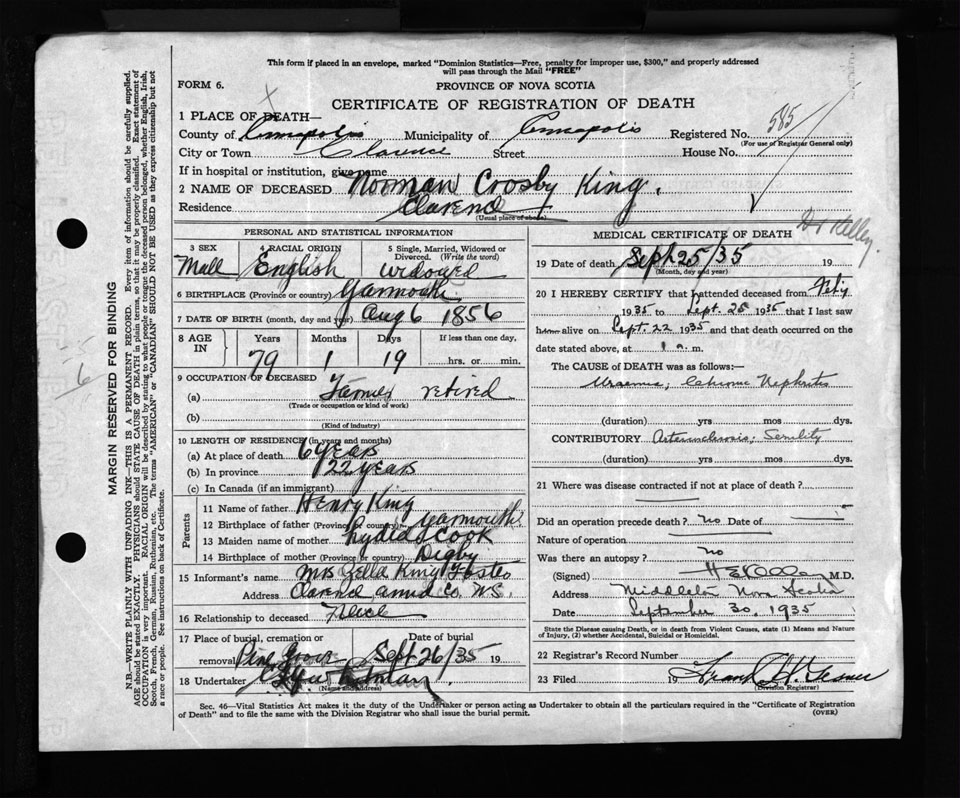 This form if placed in an envelope, marked "Dominion Statistics—Free, penalty for improper use, $300," and properly addressed
will pass through the Mail "FREE"
FORM 6.
PROVINCE OF NOVA SCOTIA
CERTIFICATE OF REGISTRATION OF DEATH
1 PLACE OF DEATH—
County of Annapolis Municipality of Annapolis Registered No. 585
(For use of Registrar General only)
City or Town Clarence Street House No.
If in hospital or institution, give name
2 NAME OF DECEASED Norman Crosby King.
Residence Clarence
(Usual place of abode)
PERSONAL AND STATISTICAL INFORMATION
3 SEX 4 RACIAL ORIGIN 5 Single, Married, Widowed or Divorced. (Write the word)
Male English widowed
6 BIRTHPLACE (Province or country) Yarmouth
7 DATE OF BIRTH (month, day and year) Aug 6 1856
8 AGE IN Years Months Days If less than one day,
79 1 19 hrs. or min.
9 OCCUPATION OF DECEASED
(a) Farmer retired
(Trade or occupation or kind of work)
(b)
(Kind of industry)
10 LENGTH OF RESIDENCE (in years and months)
(a) At place of death 6 years
(b) In province 22 years
(c) In Canada (if an immigrant)
Parents
11 Name of father Henry King
12 Birthplace of father (Province or country) Yarmouth
13 Maiden name of mother Lydia Cook
14 Birthplace of mother (Province or country) Digby
15 Informant's name Mrs Zella King Foster
Address Clarence Co. NS.
16 Relationship to deceased Niece
17 Place of burial, cremation or removal Pine Grove Date of burial Sept 26/35 19
18 Undertaker
(Name and address)
Dr Kelley
MEDICAL CERTIFICATE OF DEATH
19 Date of death Sept 25/35 19
(Month, day and year)
20 I HEREBY CERTIFY that I attended deceased from Feb'y
1935 to Sept. 25 1935 that I last saw
him alive on Sept. 22 1935 and that death occurred on the
date stated above, at 1 a. m.
The CAUSE of DEATH was as follows:—
Uraemia; Chronic Nephritis
(duration) yrs mos. dys.
CONTRIBUTORY Arteriosclerosis; Senility
(duration) yrs mos. dys.
21 Where was disease contracted if not at place of death?
Did an operation precede death? no Date of
Nature of operation
Was there an autopsy? no
(Signed) M.D.
Address Middleton Nova Scotia
Date September 30, 1935
State the Disease causing Death, or in death from Violent Causes, state (1) Means and Nature
of Injury, (2) whether Accidental, Suicidal or Homicidal.
22 Registrar's Record Number
23 Filed 19 Frank H. Gesner
Division Registrar)
Sec. 46—Vital Statistics Act makes it the duty of the Undertaker or person acting as Undertaker to obtain all the particulars required in the "Certificate of Registration
of Death" and to file the same with the Division Registrar who shall issue the burial permit.
(OVER)
MARGIN RESERVED FOR BINDING
N.B.—WRITE PLAINLY WITH UNFADING INK—THIS IS A PERMANENT RECORD. Every item of information should be carefully supplied.
AGE should be stated EXACTLY. PHYSICIANS should STATE CAUSE OF DEATH in plain terms, so that it may be properly classified. Exact statement of
OCCUPATION is very important. RACIAL ORIGIN will be described by stating to what people or tongue the deceased person belonged, whether English, Irish,
Scotch, French, German, Russian, Ruthenian, etc. The terms "AMERICAN" or "CANADIAN" SHOULD NOT BE USED as they express citizenship but not
a race or people. See instructions on back of Certificate.